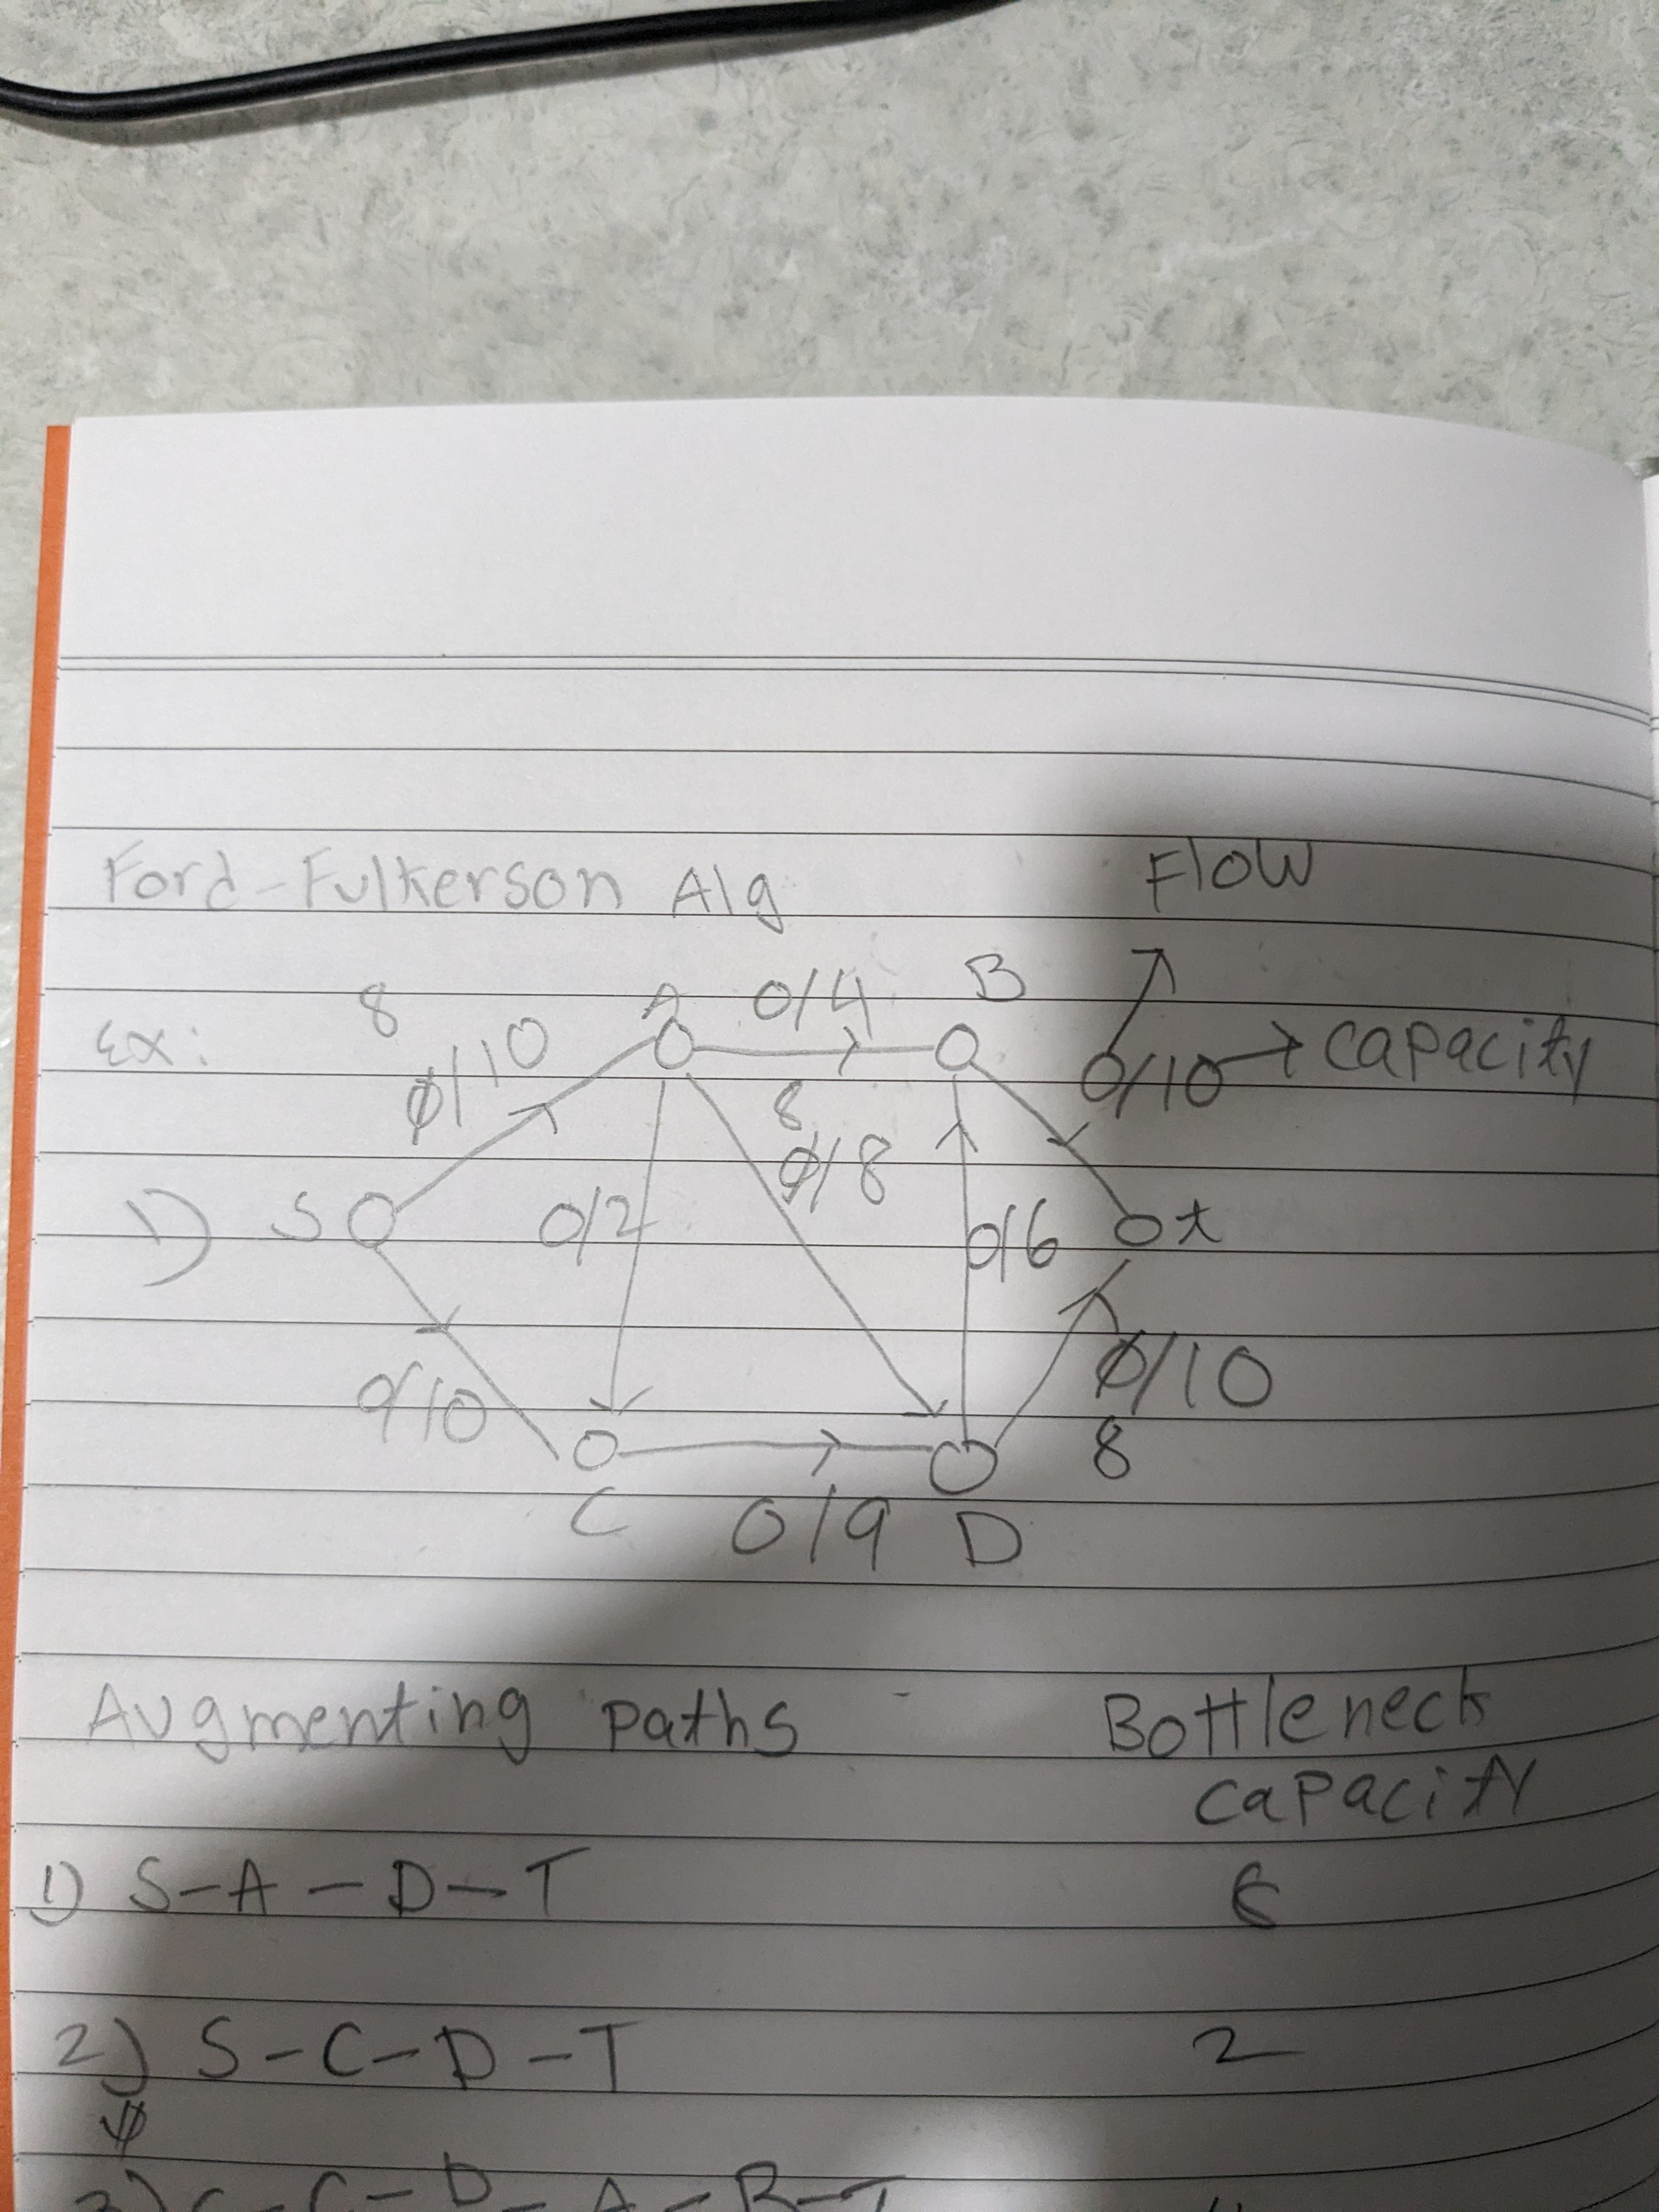 Ford-Fulkerson Alg
Flow
Ex:
8
0/10
A
0/4
B
0/10
capacity
8
0/8
1)
S
0/2
0/6
t
0/10
0/10
8
C
0/9
D
Augmenting paths
Bottleneck
capacity
1) S-A-D-T
2) S-C-D-T 2
3) S-C-D-A-B-T